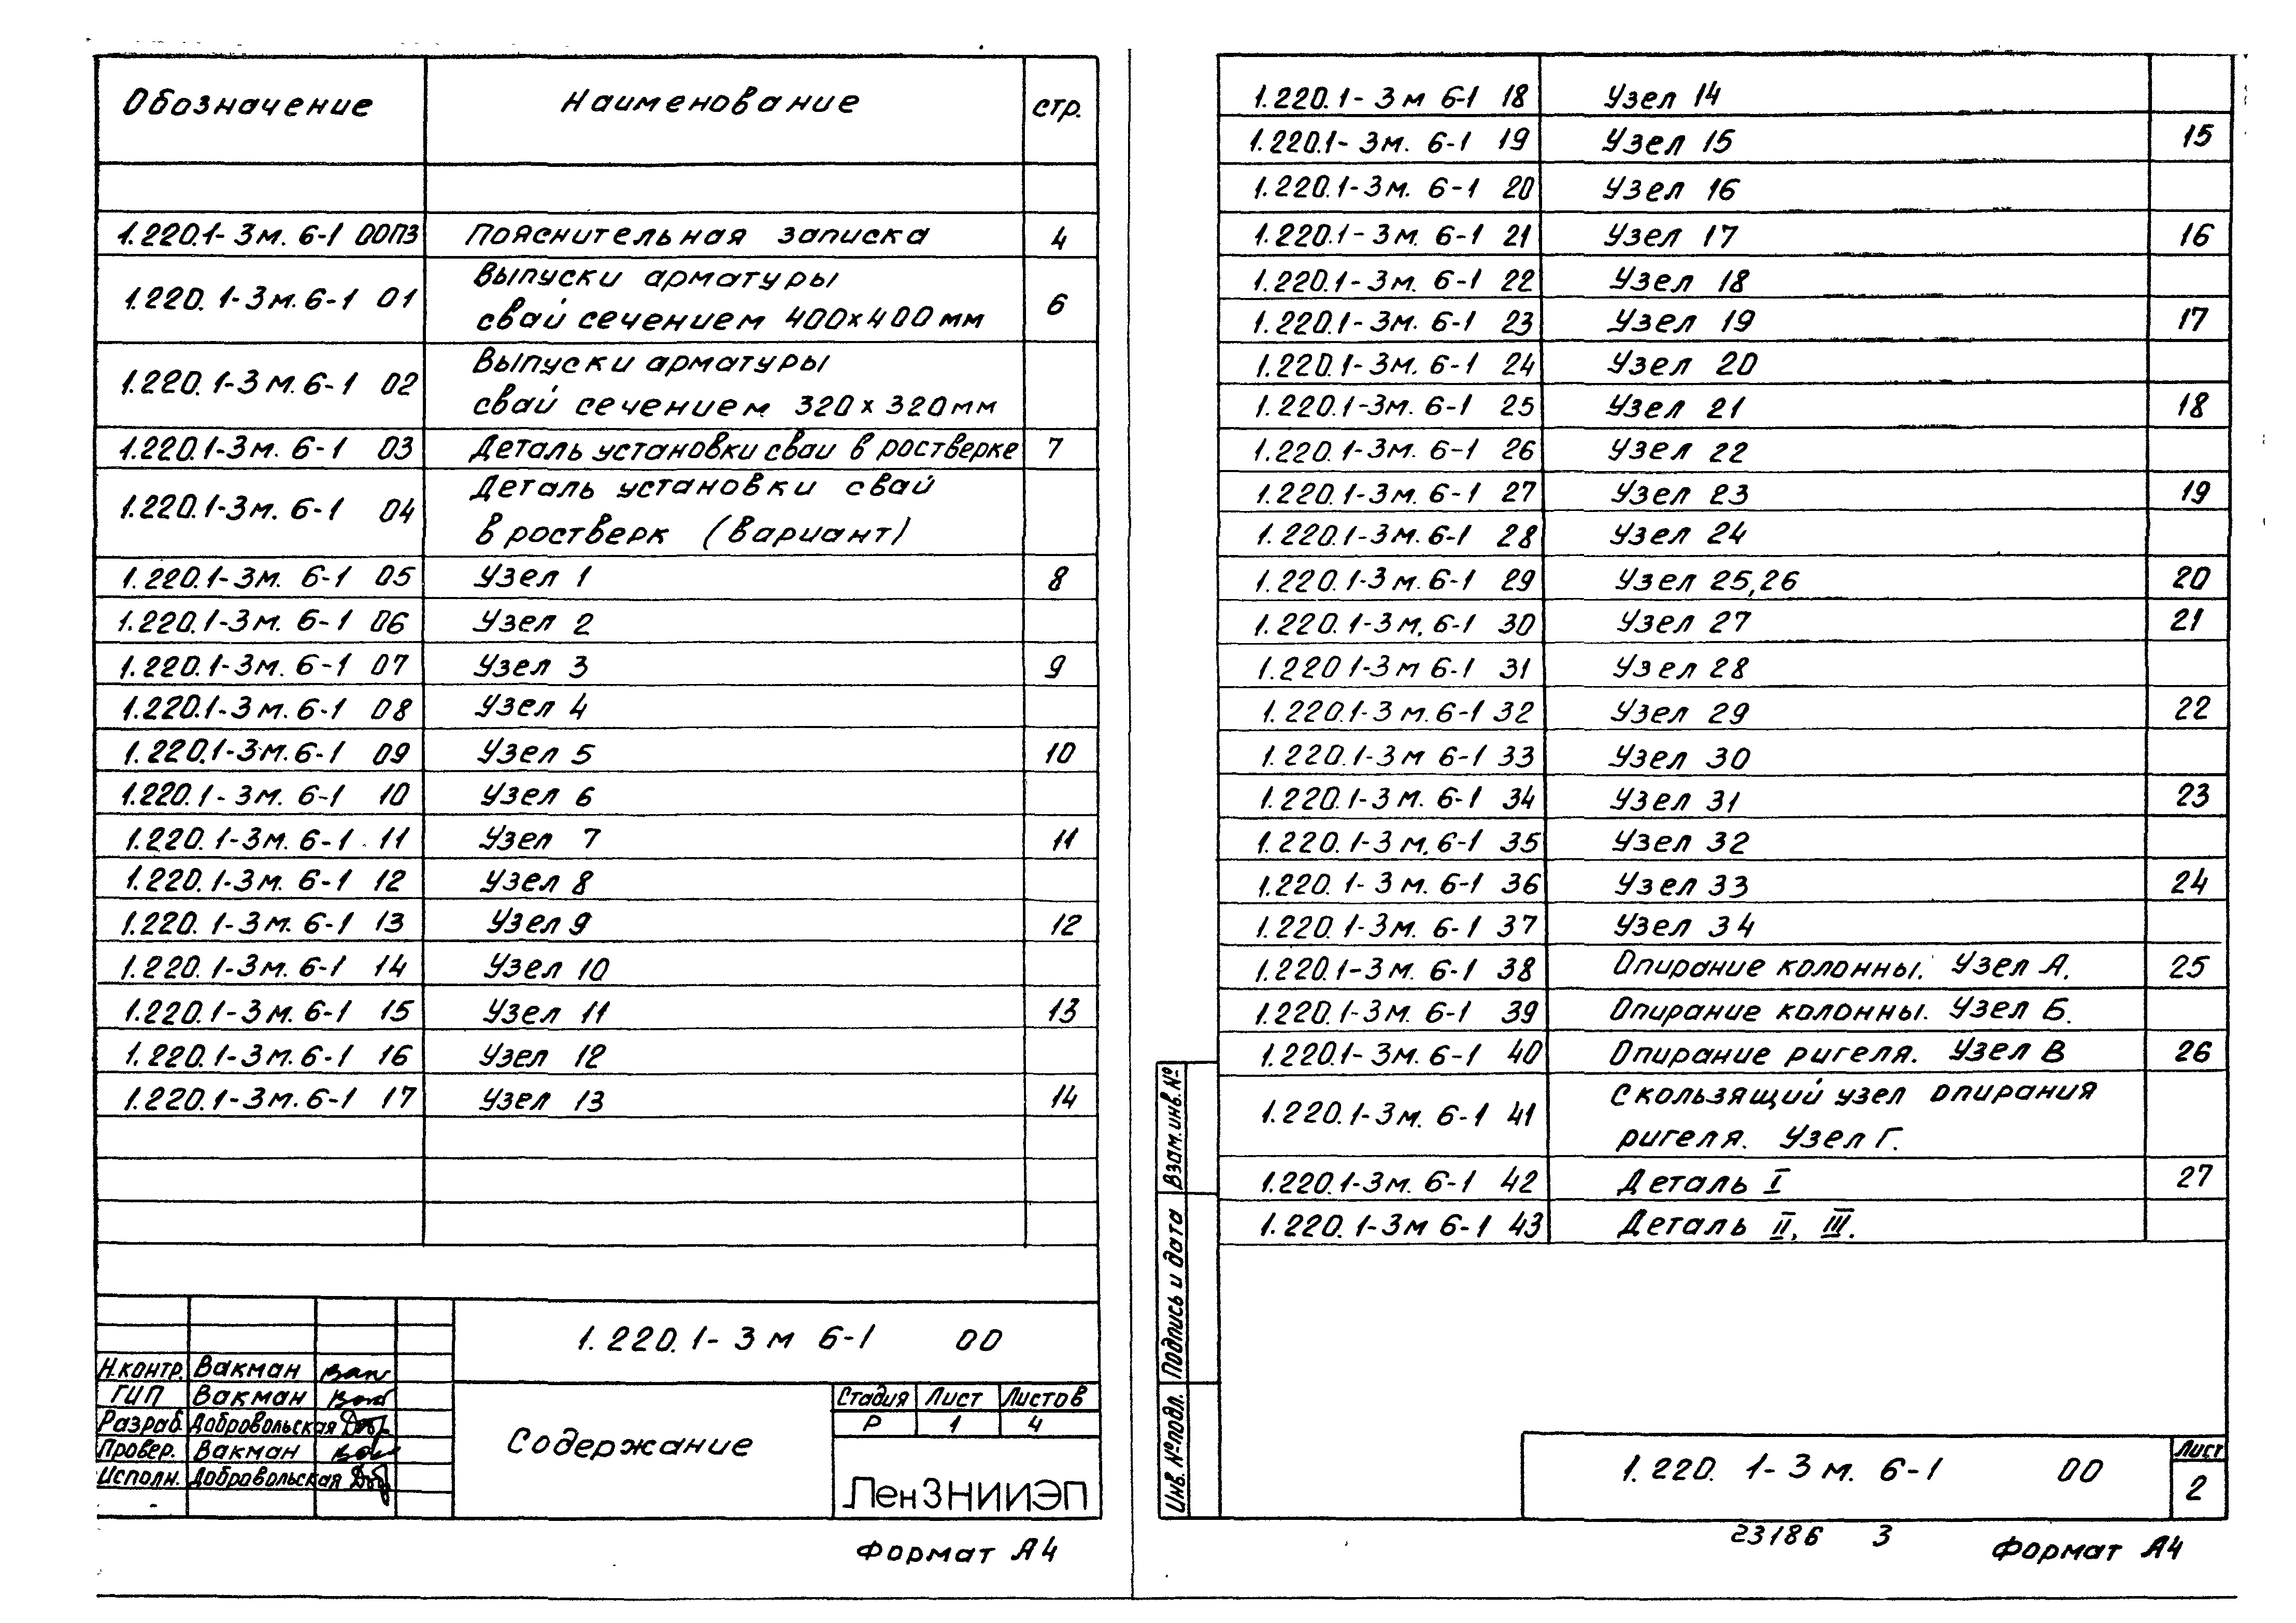 Обозначение Наименование стр.
1.220.1-3м. 6-1 00ПЗ Пояснительная записка 4
1.220.1-3м. 6-1 01 Выпуски арматуры
свай сечением 400×400мм 6
1.220.1-3м. 6-1 02 Выпуски арматуры
свай сечением 320×320мм
1.220.1-3м. 6-1 03 Деталь установки сваи в ростверке 7
1.220.1-3м. 6-1 04 Деталь установки свай
в ростверк (вариант)
1.220.1-3м. 6-1 05 Узел 1 8
1.220.1-3м. 6-1 06 Узел 2
1.220.1-3м. 6-1 07 Узел 3 9
1.220.1-3м. 6-1 08 Узел 4
1.220.1-3м. 6-1 09 Узел 5 10
1.220.1-3м. 6-1 10 Узел 6
1.220.1-3м. 6-1 11 Узел 7 11
1.220.1-3м. 6-1 12 Узел 8
1.220.1-3м. 6-1 13 Узел 9 12
1.220.1-3м. 6-1 14 Узел 10
1.220.1-3м. 6-1 15 Узел 11 13
1.220.1-3м. 6-1 16 Узел 12
1.220.1-3м. 6-1 17 Узел 13 14
1.220.1-3м 6-1 00
Н.контр. Вакман
ГИП Вакман
Разраб. Добровольская
Провер. Вакман
Исполн. Добровольская
Содержание
Стадия Лист Листов
Р 1 4
ЛенЗНИИЭП
Формат А4
1.220.1-3м 6-1 18 Узел 14
1.220.1-3м. 6-1 19 Узел 15 15
1.220.1-3м. 6-1 20 Узел 16
1.220.1-3м. 6-1 21 Узел 17 16
1.220.1-3м. 6-1 22 Узел 18
1.220.1-3м. 6-1 23 Узел 19 17
1.220.1-3м. 6-1 24 Узел 20
1.220.1-3м. 6-1 25 Узел 21 18
1.220.1-3м. 6-1 26 Узел 22
1.220.1-3м. 6-1 27 Узел 23 19
1.220.1-3м. 6-1 28 Узел 24
1.220.1-3м. 6-1 29 Узел 25,26 20
1.220.1-3м. 6-1 30 Узел 27 21
1.220 1-3м 6-1 31 Узел 28
1.220.1-3м. 6-1 32 Узел 29 22
1.220.1-3м 6-1 33 Узел 30
1.220.1-3м. 6-1 34 Узел 31 23
1.220.1-3м. 6-1 35 Узел 32
1.220.1-3м. 6-1 36 Узел 33 24
1.220.1-3м. 6-1 37 Узел 34
1.220.1-3м. 6-1 38 Опирание колонны. Узел А. 25
1.220.1-3м. 6-1 39 Опирание колонны. Узел Б.
1.220.1-3м. 6-1 40 Опирание ригеля. Узел В 26
1.220.1-3м. 6-1 41 Скользящий узел опирания
ригеля. Узел Г.
1.220.1-3м. 6-1 42 Деталь I 27
1.220.1-3м 6-1 43 Деталь II, III.
Взам.инв.№
Подпись и дата
Инв.№подл.
1.220.1-3м. 6-1 00
Лист
2
23186 3
Формат А4